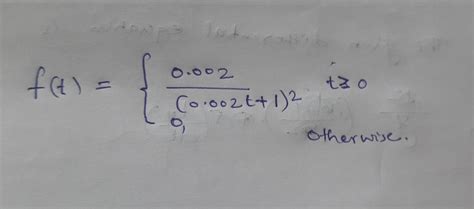 f(t) = { 0.002 / (0.002t+1)2 t≥0
0, otherwise.